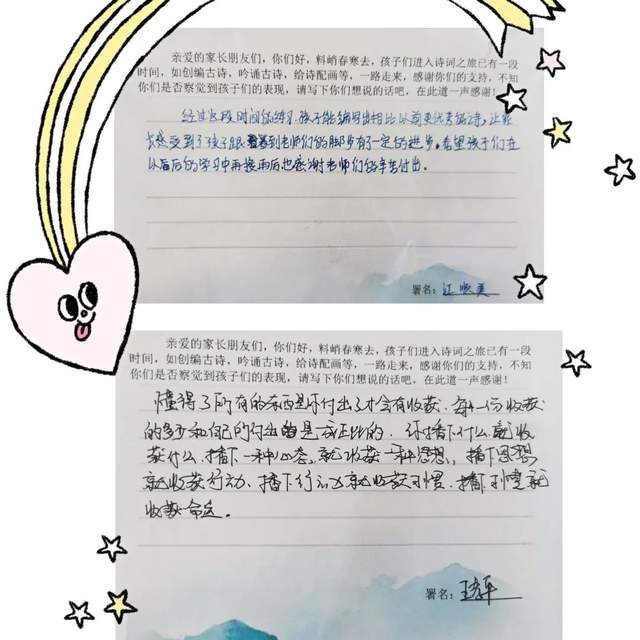 亲爱的家长朋友们，你们好，料峭春寒去，孩子们进入诗词之旅已有一段
时间，如创编古诗，吟诵古诗，给诗配画等，一路走来，感谢你们的支持，不知
你们是否察觉到孩子们的表现，请写下你们想说的话吧，在此道一声感谢！
经过这段时间的练习，孩子能编写出相比以前更优美的诗，让家
长感受到了孩子跟着老师们的脚步有了一定的进步。希望孩子们在
以后的学习中再接再厉也感谢老师们的辛苦付出。
署名：
亲爱的家长朋友们，你们好，料峭春寒去，孩子们进入诗词之旅已有一段
时间，如创编古诗，吟诵古诗，给诗配画等，一路走来，感谢你们的支持，不知
你们是否察觉到孩子们的表现，请写下你们想说的话吧，在此道一声感谢！
懂得了所有的东西是你付出了才会有收获，每一份收获
的多少和自己的付出是成正比的，你播下什么，就收
获什么，播下一种心态，就收获一种思想，播下思想
就收获行动，播下行动就收获习惯，播下习惯就
收获命运。
署名：